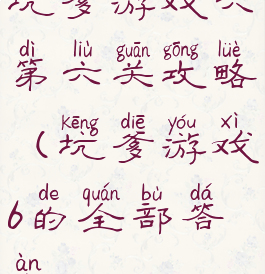 坑爹游戏
dì liù guān gōng lüè
第六关攻略
kēng diē yóu xì
(坑爹游戏
de quán bù dá
6的全部答
àn